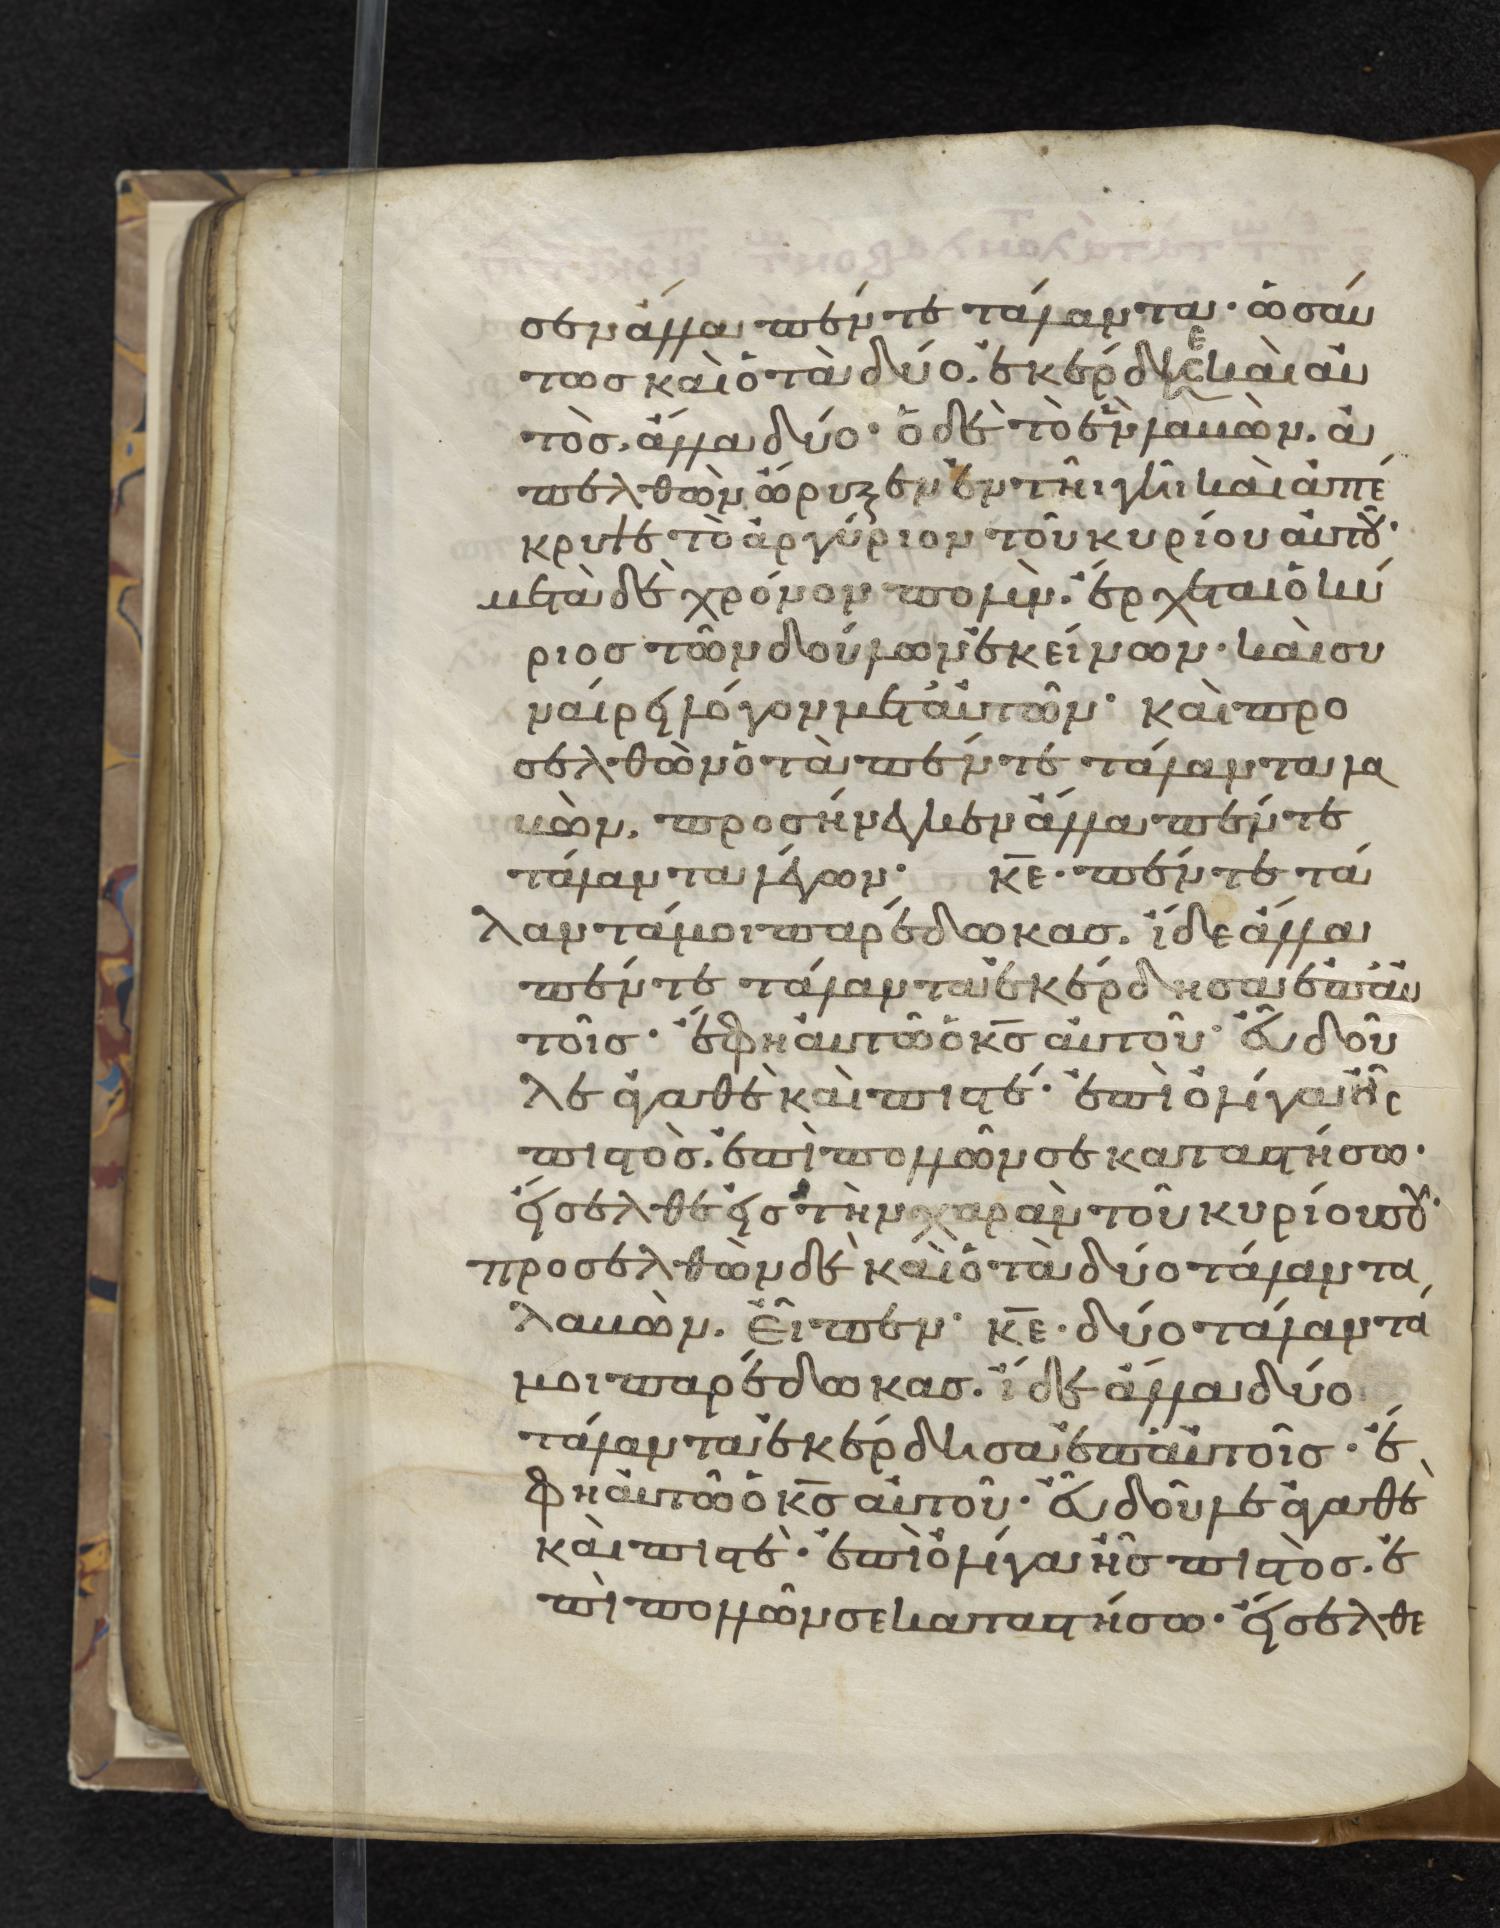 σεν ἄλλα πέντε τάλαντα· ὡσάυ
τωσ καὶ ὁ τὰ δύο. ἐκέρδησε καὶ ἀυ
τὸσ. ἄλλα δύο· ὁ δὲ τὸ ἓν λαβὼν. ἀ
πελθὼν ὤρυξεν ἐν τῆι γῆι καὶ ἀπέ
κρυψε τὸ ἀργύριον τοῦ κυρίου ἀυτοῦ·
μετὰ δὲ χρόνον πολὺν. ἔρχεται ὁ κύ
ριοσ τῶν δούλων ἐκείνων· καὶ συ
ναίρει λόγον μετ' ἀυτῶν· καὶ προ
σελθὼν ὁ τὰ πέντε τάλαντα λα
βὼν. προσήνεγκεν ἄλλα πέντε
τάλαντα λέγων· κ̅ε̅· πέντε τά
λαντά μοι παρέδωκασ. ἴδε ἄλλα
πέντε τάλαντα ἐκέρδησα ἐπ' ἀυ
τοῖσ· ἔφη ἀυτῶ ὁ κ̅σ̅ ἀυτοῦ· ἖υ δοῦ
λε ἀγαθὲ καὶ πιστέ· ἐπὶ ὀλίγα ἦσ
πιστὸσ. ἐπὶ πολλῶν σε καταστήσω·
ἔισελθε ἐισ τὴν χαρὰν τοῦ κυρίου σοῦ·
προσελθὼν δὲ καὶ ὁ τὰ δύο τάλαντα
λαβὼν. ἖ιπεν· κ̅ε̅· δύο τάλαντά
μοι παρέδωκασ. ἴδε ἄλλα δύο
τάλαντα ἐκέρδησα ἐπ' ἀυτοῖσ· ἔ
φη ἀυτῶ ὁ κ̅σ̅ ἀυτοῦ· ἖υ δοῦλε ἀγαθὲ
καὶ πιστὲ· ἐπὶ ὀλίγα ἦσ πιστὸσ. ἐ
πὶ πολλῶν σε καταστήσω· ἔισελθε